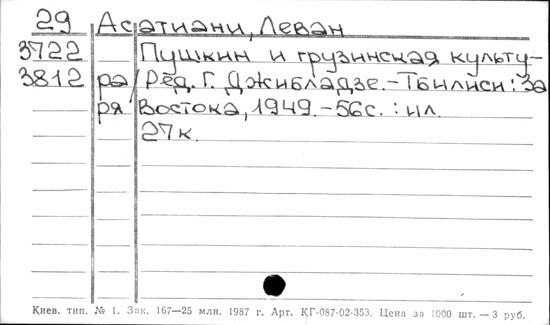 29 Асатиани, Леван
3722 Пушкин и грузинская культу-
3812 ра/Ред. Г. Джибладзе.-Тбилиси: За
ря Востока, 1949.-56с.: ил.
27к.
Киев. тип. № 1. Зак. 167—25 млн. 1987 г. Арт. КГ-087-02-353. Цена за 1000 шт. — 3 руб.